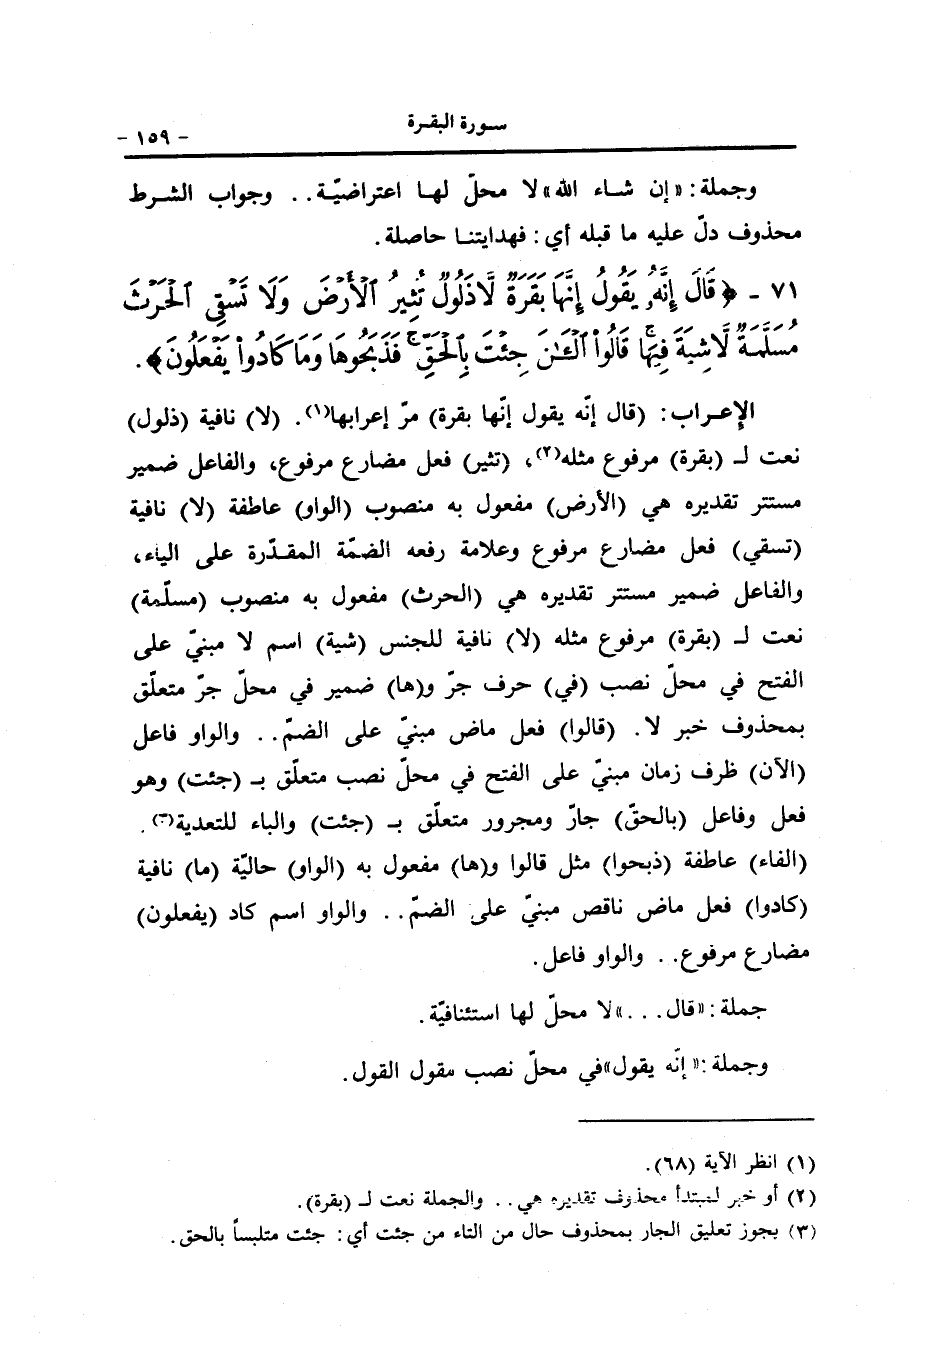 سورة البقرة
- ١٥٩ -
وجملة: «إن شاء الله» لا محلّ لها اعتراضيّة.. وجواب الشرط
محذوف دلّ عليه ما قبله أي: فهدايتنا حاصلة.
٧١ - ﴿قَالَ إِنَّهُۥ يَقُولُ إِنَّهَا بَقَرَةٌ لَّا ذَلُولٌ تُثِيرُ ٱلْأَرْضَ وَلَا تَسْقِى ٱلْحَرْثَ
مُسَلَّمَةٌ لَّا شِيَةَ فِيهَا ۚ قَالُوا۟ ٱلْـَٰٔنَ جِئْتَ بِٱلْحَقِّ ۚ فَذَبَحُوهَا وَمَا كَادُوا۟ يَفْعَلُونَ﴾.
الإعراب: (قال إنّه يقول إنّها بقرة) مرّ إعرابها(١). (لا) نافية (ذلول)
نعت لـ (بقرة) مرفوع مثله(٢)، (تثير) فعل مضارع مرفوع، والفاعل ضمير
مستتر تقديره هي (الأرض) مفعول به منصوب (الواو) عاطفة (لا) نافية
(تسقي) فعل مضارع مرفوع وعلامة رفعه الضمّة المقدّرة على الياء،
والفاعل ضمير مستتر تقديره هي (الحرث) مفعول به منصوب (مسلّمة)
نعت لـ (بقرة) مرفوع مثله (لا) نافية للجنس (شية) اسم لا مبنيّ على
الفتح في محلّ نصب (في) حرف جرّ و(ها) ضمير في محلّ جرّ متعلّق
بمحذوف خبر لا. (قالوا) فعل ماض مبنيّ على الضمّ.. والواو فاعل
(الآن) ظرف زمان مبنيّ على الفتح في محلّ نصب متعلّق بـ (جئت) وهو
فعل وفاعل (بالحقّ) جارّ ومجرور متعلّق بـ (جئت) والباء للتعدية(٣).
(الفاء) عاطفة (ذبحوا) مثل قالوا و(ها) مفعول به (الواو) حاليّة (ما) نافية
(كادوا) فعل ماض ناقص مبنيّ على الضمّ.. والواو اسم كاد (يفعلون)
مضارع مرفوع.. والواو فاعل.
جملة: «قال...» لا محلّ لها استئنافيّة.
وجملة: «إنّه يقول» في محلّ نصب مقول القول.
(١) انظر الآية (٦٨).
(٢) أو خبر لمبتدأ محذوف تقديره هي.. والجملة نعت لـ (بقرة).
(٣) يجوز تعليق الجار بمحذوف حال من التاء من جئت أي: جئت متلبساً بالحق.